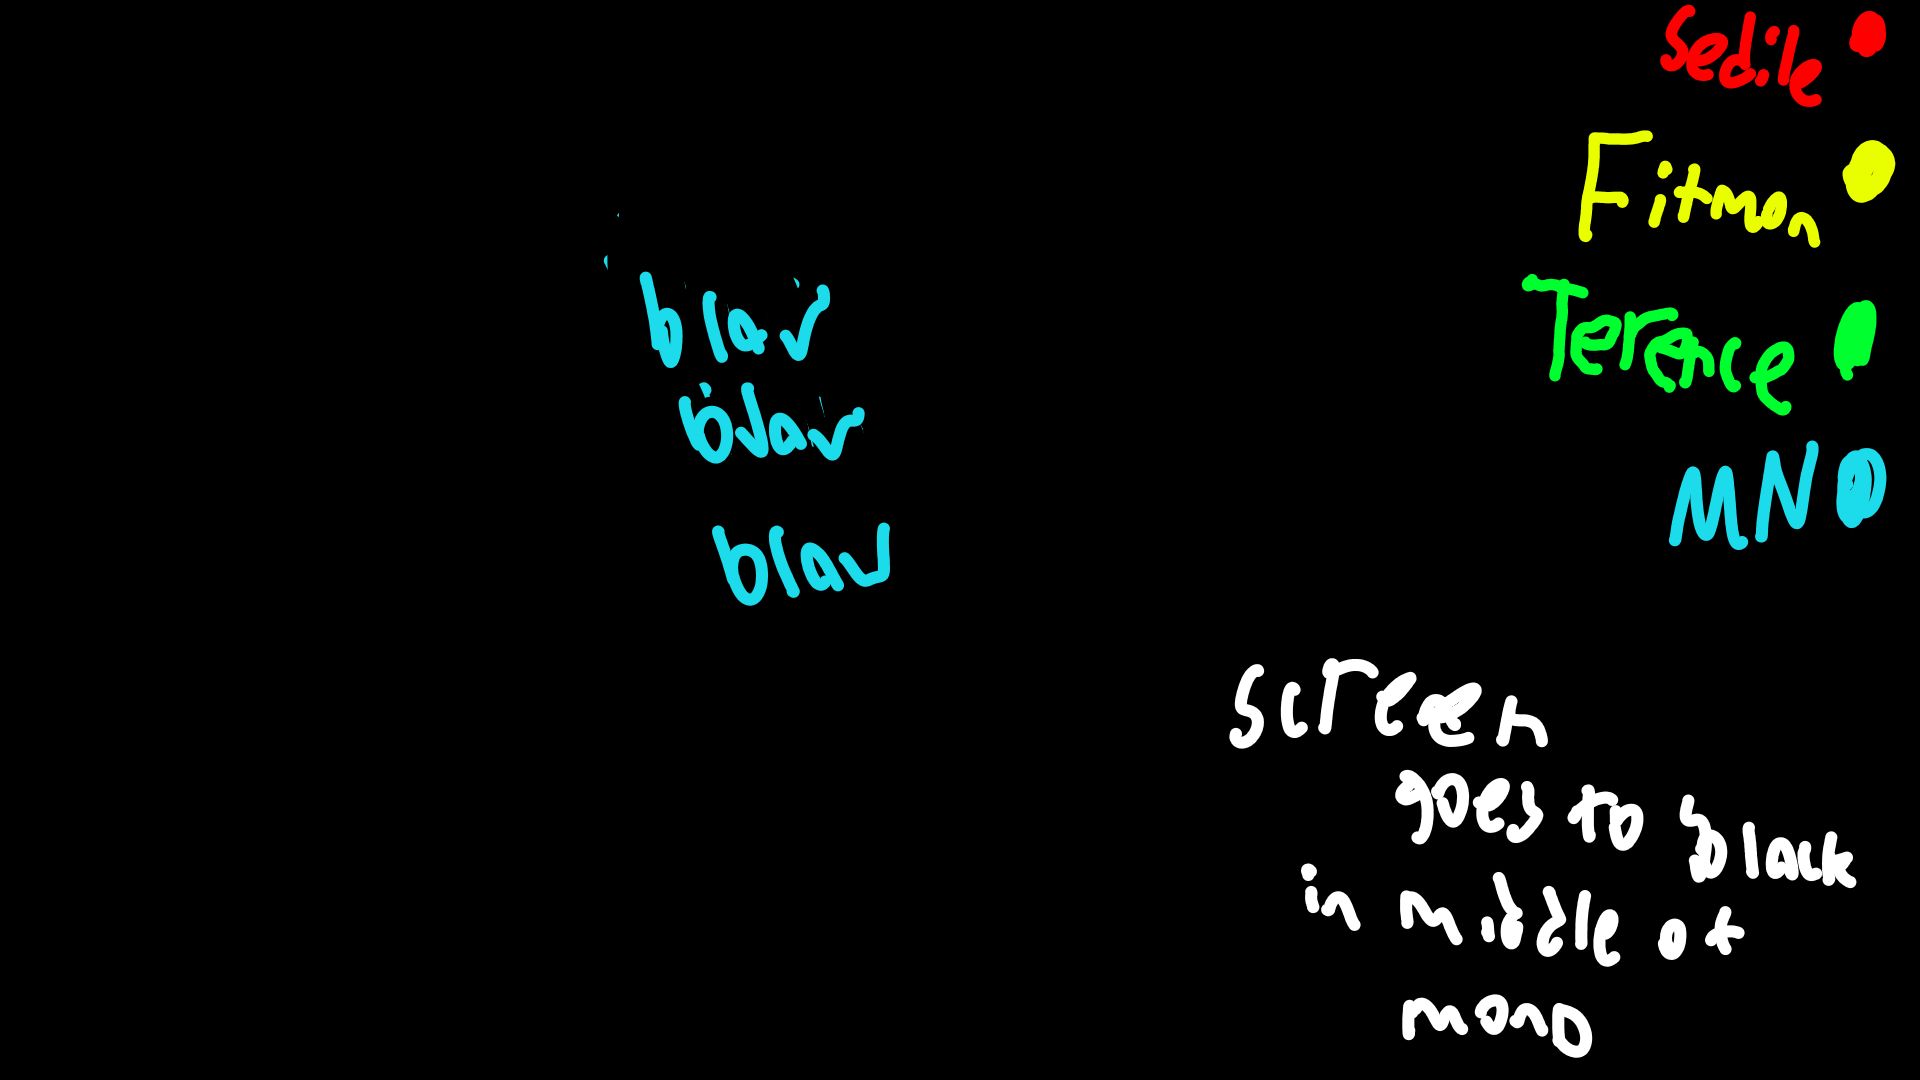 Sedile
Fitmon
Terence
MN
blav
blav
blav
screen
goes to black
in middle of
mono